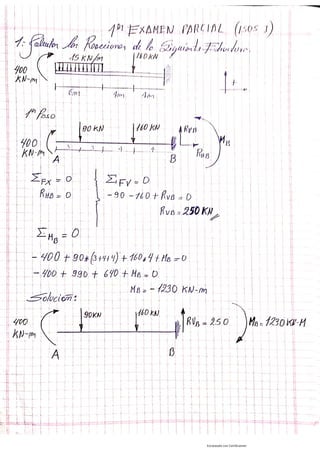 1er EXAMEN PARCIAL (ISOS I)
1: Calcular las Reacciones de la Siguiente Estructura.
15 KN/m 160KN
400
KN-m
6m 4m 4m
+
1er Paso
90 KN 160 KN RVB MB
400
KN-m 3 3 4 4 RHB
A B
ΣFX = 0 ΣFV = 0
RHB = 0 -90 -160 + RVB = 0
RVB = 250 KN
ΣMB = 0
- 400 + 90*(3+4+4) + 160*4 + MB = 0
- 400 + 990 + 640 + MB = 0
MB = - 1230 KN-m
Solución:
400 90KN 160 KN RVB = 250 MB = 1230 KN-M
KN-m
A B
Escaneado con CamScanner